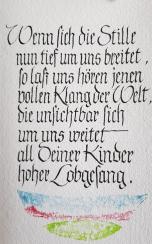 Wenn sich die Stille
nun tief um uns breitet,
so laß uns hören jenen
vollen Klang der Welt,
die unsichtbar sich
um uns weitet –
all Deiner Kinder
hoher Lobgesang.